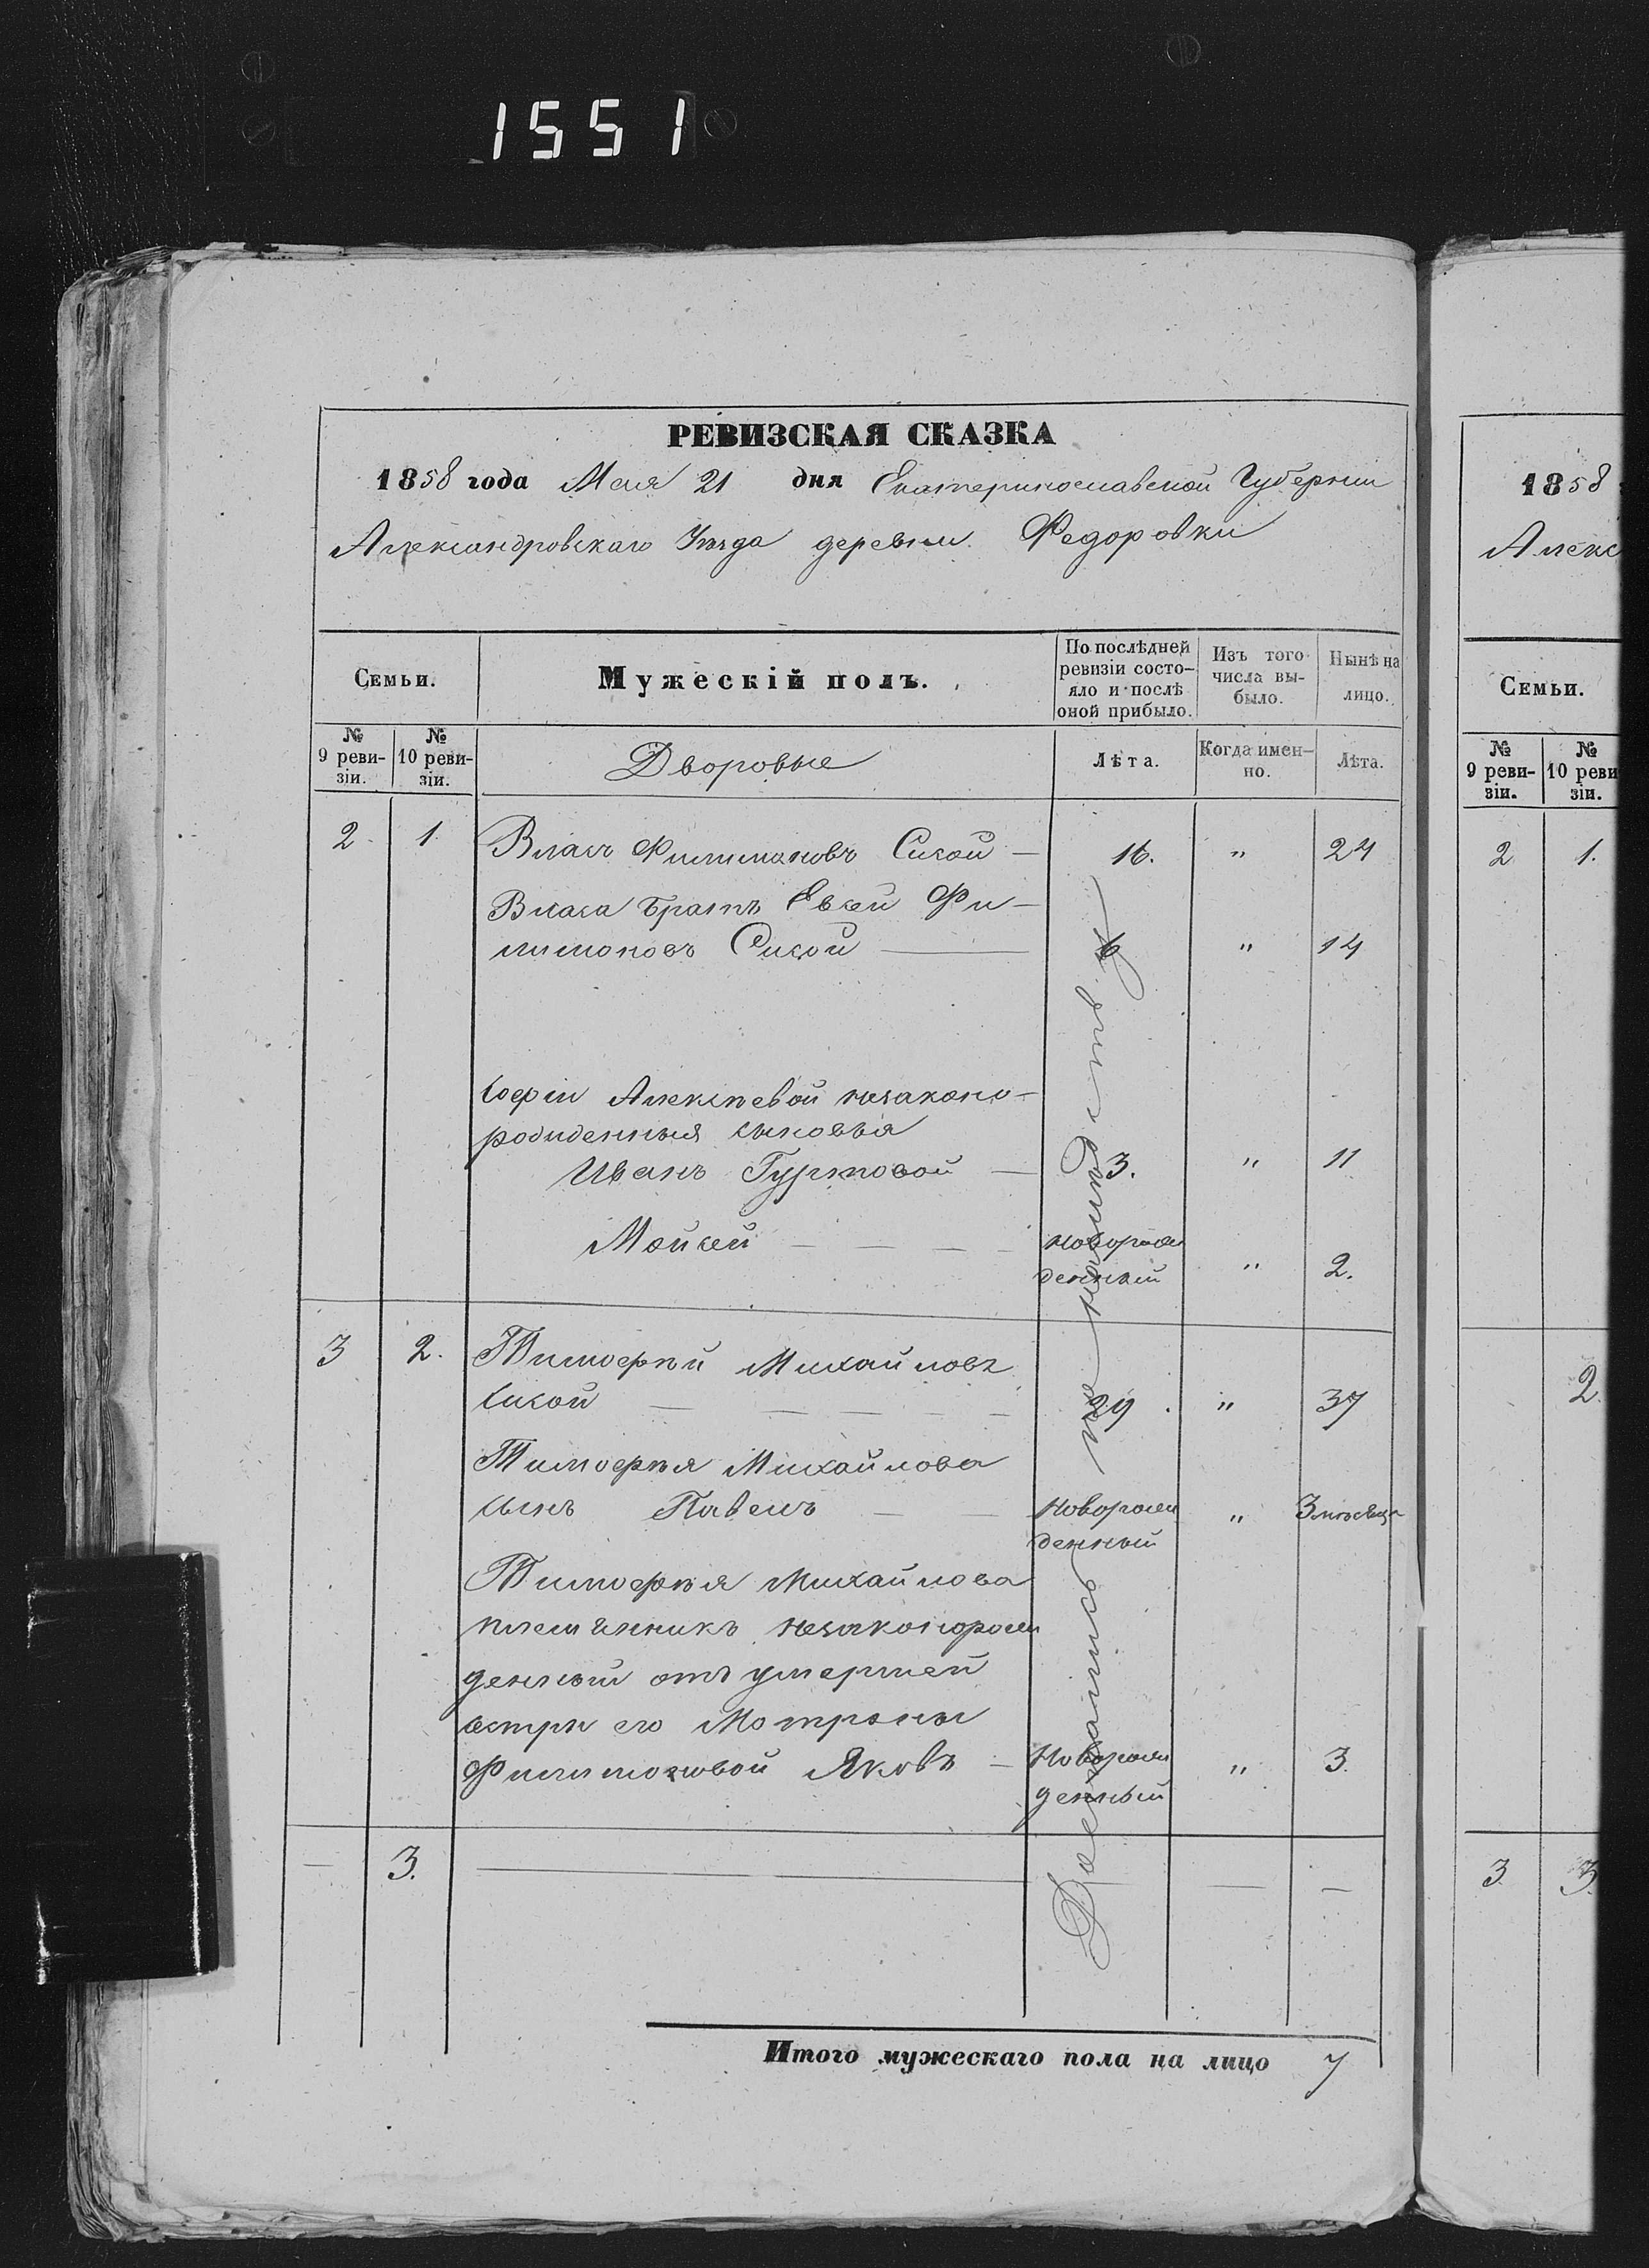 1551
РЕВИЗСКАЯ СКАЗКА
1858 года Мая 21 дня Екатеринославской Губернии
Александровскаго Уѣзда деревни Федоровки
Семьи.
Мужескій полъ.
По послѣдней
ревизіи состо-
яло и послѣ
оной прибыло.
Изъ того
числа вы-
было.
Нынѣ на
лицо.
№
9 реви-
зіи.
№
10 реви-
зіи.
Дворовые
Лѣта.
Когда имен-
но.
Лѣта.
2 1 Власъ Филимоновъ Сисой — 16. " 24
Власа Братъ Евсей Фи-
лимоновъ Сисой — 6 " 14
Софіи Алексѣевой незаконо-
рожденныя сыновья
Иванъ Гуртовой — 3. " 11
Мойсей — — — — новорож
денный " 2.
3 2. Тимофѣй Михайловъ
Сисой — — — — — 29. " 37
Тимофѣя Михайлова
сынъ Павелъ — — Новорож
денный " 3 мѣсяца
Тимофѣя Михайлова
племянникъ незаконорож
денный отъ умершей
сестры его Мотроны
Филимоновой Яковъ — Новорож
денный " 3.
— 3. — — —
Итого мужескаго пола на лицо 7
1858
Алекс
Семьи.
№
9 реви-
зіи.
№
10 реви
зіи.
2 1.
2.
3 3.